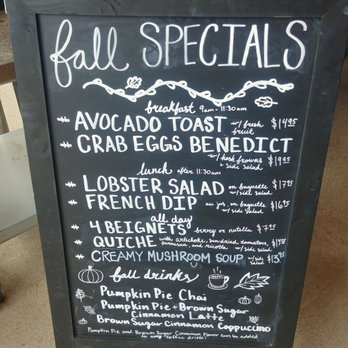 fall SPECIALS
breakfast 9am - 11:30am
AVOCADO TOAST w/ fresh fruit $14.95
CRAB EGGS BENEDICT
w/ hash browns + side salad $19.95
lunch after 11:30am
LOBSTER SALAD on baguette w/ side salad $17.95
FRENCH DIP au jus, on baguette w/ side salad $16.95
all day
4 BEIGNETS berry or nutella
QUICHE with artichoke, sundried tomatoes, parmesan, and ricotta w/ side salad
CREAMY MUSHROOM SOUP w/ side salad $13.95
fall drinks
Pumpkin Pie Chai
Pumpkin Pie + Brown Sugar
Cinnamon Latte
Brown Sugar Cinnamon Cappuccino
Pumpkin Pie and Brown Sugar Cinnamon Flavor can be added
to any coffee drink!